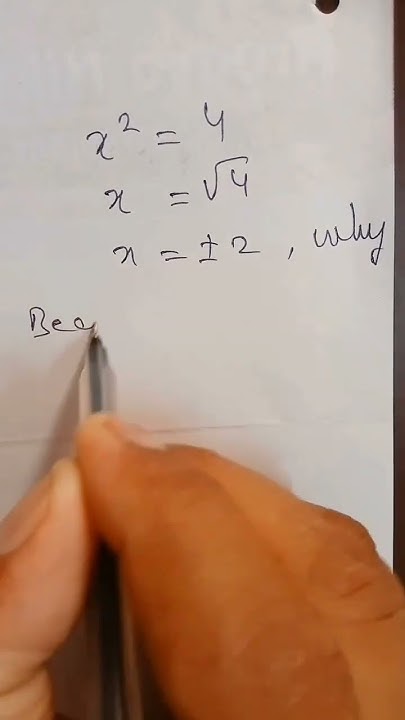 x² = 4
x = √4
x = ±2, why
Bec